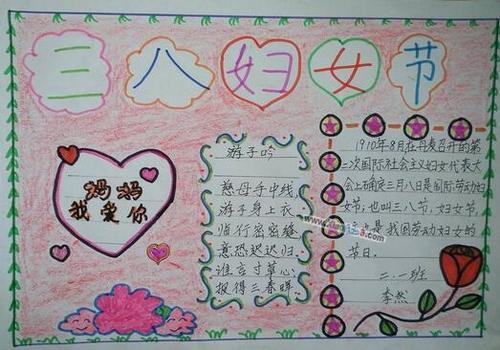 三八妇女节
妈妈
我爱你
游子吟
慈母手中线
游子身上衣
临行密密缝
意恐迟迟归
谁言寸草心
报得三春晖
1910年8月在丹麦召开的第
二次国际社会主义妇女代表大
会上确定三月八日是国际劳动妇
女节,也叫三八节,妇女节,
是我国劳动妇女的
节日。
二.一班
李然